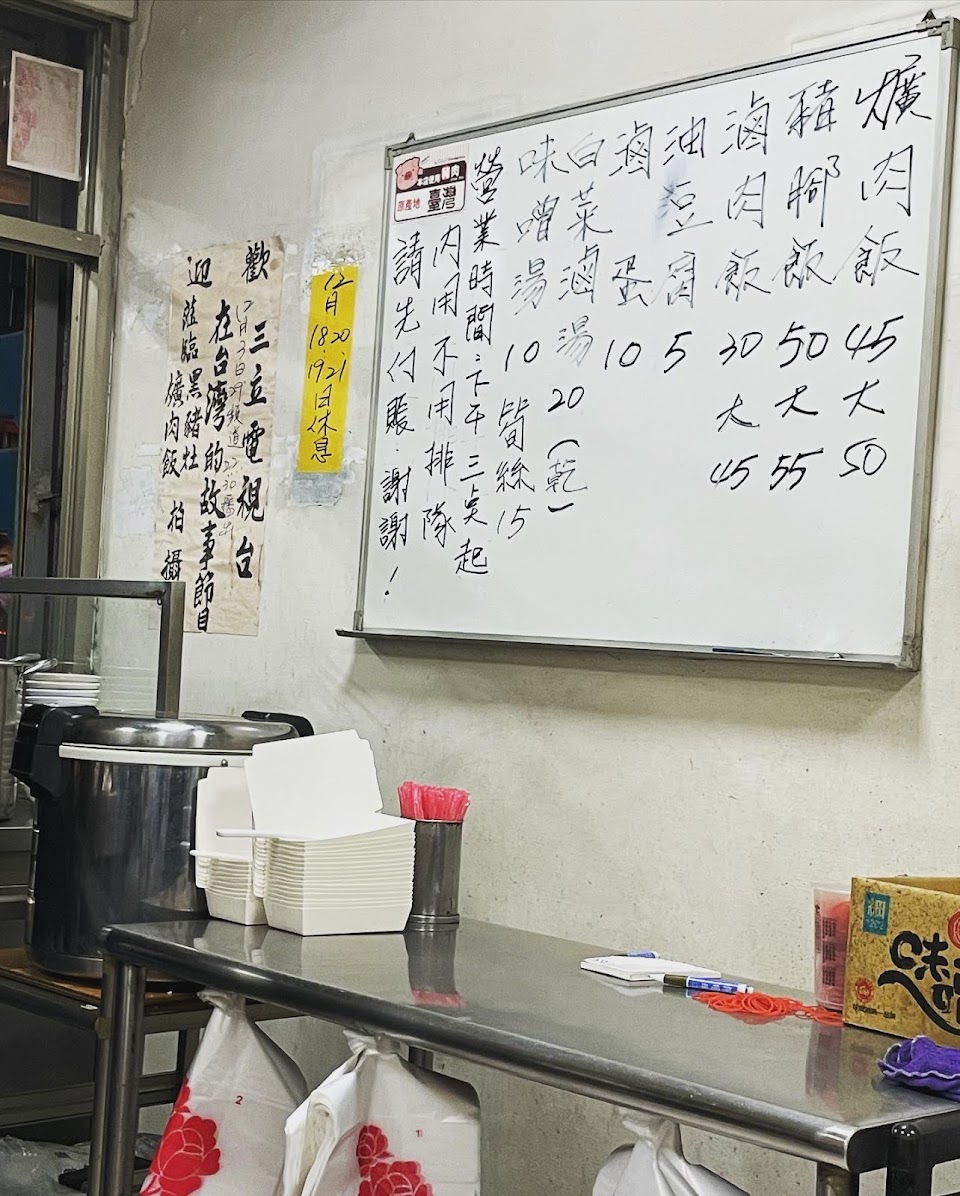 爌肉飯 45 大 50
豬腳飯 50 大 55
滷肉飯 30 大 45
油豆腐 5
滷蛋 10
白菜滷湯 20 (乾)
味噌湯 10 筍絲 15
營業時間:下午三点起
內用不用排隊
請先付賬.謝謝!
豬肉
原產地 臺灣
12月
18.20.
19.21
日休息
歡
迎
三立電視台
在台灣的故事節目
蒞臨黑豬牡
爌肉飯 拍攝
細
味
2
1